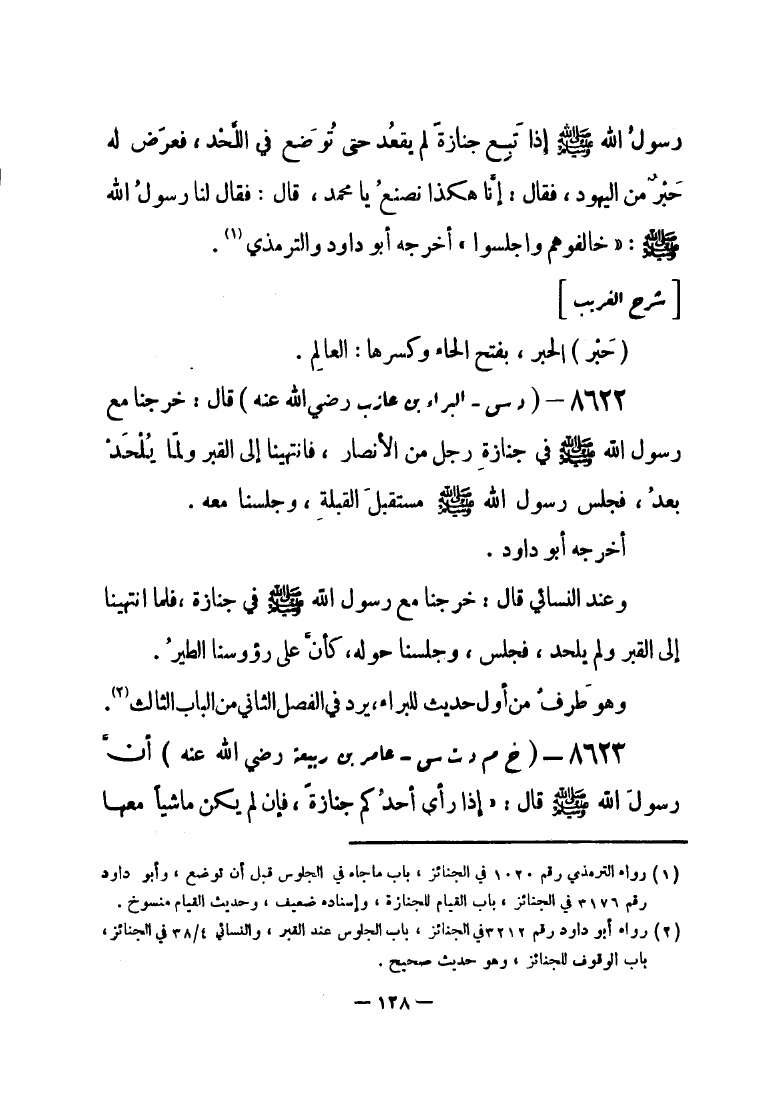 رسولُ الله ﷺ إذا تَبِع جنازةً لم يقعُد حتى تُوضَع في اللَّحْد ، فعرَض له
حَبْرٌ من اليهود ، فقال : إنَّا هكذا نصنعُ يا محمد ، قال : فقال لنا رسولُ الله
ﷺ : « خالفوهم واجلسوا » أخرجه أبو داود والترمذي (١) .
[ شرح الغريب ]
( حَبْر ) الحبر ، بفتح الحاء وكسرها : العالِم .
٨٦٢٢ – ( د س - البراء بن عازب رضي الله عنه ) قال : خرجنا مع
رسول الله ﷺ في جنازةِ رجل من الأنصار ، فانتهينا إلى القبر ولَمّا يُلْحَدْ
بعدُ ، فجلس رسول الله ﷺ مستقبلَ القبلةِ ، وجلسنا معه .
أخرجه أبو داود .
وعند النسائي قال : خرجنا مع رسول الله ﷺ في جنازة ، فلما انتهينا
إلى القبر ولم يلحد ، فجلس ، وجلسنا حوله ، كأنَّ على رؤوسنا الطيرُ .
وهو طَرفٌ من أول حديث للبراء ، يرد في الفصل الثاني من الباب الثالث (٢) .
٨٦٢٣ – ( خ م د ت س - عامر بن ربيعة رضي الله عنه ) أنَّ
رسولَ الله ﷺ قال : « إذا رأى أحدُكم جنازةً ، فإن لم يكن ماشياً معها
(١) رواه الترمذي رقم ١٠٢٠ في الجنائز ، باب ماجاء في الجلوس قبل أن توضع ، وأبو داود
رقم ٣١٧٦ في الجنائز ، باب القيام للجنازة ، وإسناده ضعيف ، وحديث القيام منسوخ .
(٢) رواه أبو داود رقم ٣٢١٢ في الجنائز ، باب الجلوس عند القبر ، والنسائي ٣٨/٤ في الجنائز ،
باب الوقوف للجنائز ، وهو حديث صحيح .
– ١٢٨ –